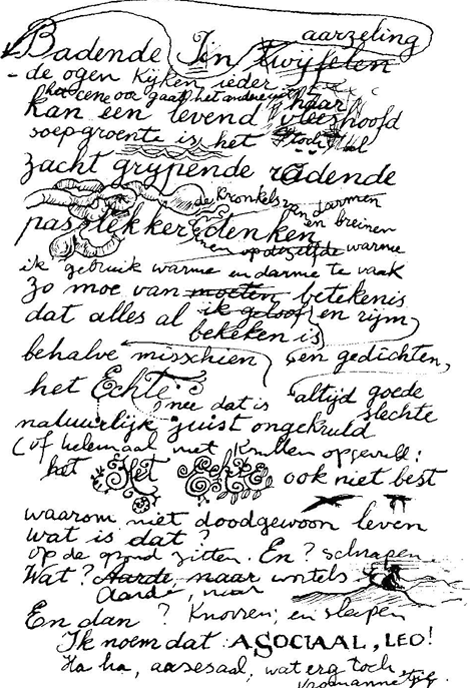 aarzeling
Badende In twijfelen
- de ogen kijken ieder
het ene oor gaat het andere haar
kan een levend vleeshoofd
soepgroente is het
zacht grypende radende
de kronkels van darmen
en breinen
pas lekker denken
en op dezelfde warme
ik gebruik warme en darme te vaak
Zo moe van moeten betekenis
dat alles al ik geloof en rijm
bekeken is
behalve misschien en gedichten,
het Echte altijd goede
nee dat is slechte
natuurlijk juist ongekruld
(of helemaal met krullen opgevuld:
het Het Echte ook niet best
waarom niet doodgewoon leven
wat is dat?
op de grond zitten. En? schrapen
Wat? Aarde, naar wortels
Aarde, naar
En dan? Knorren; en slapen
Ik noem dat ASOCIAAL, LEO!
Ha ha, aasesaal, wat erg toch